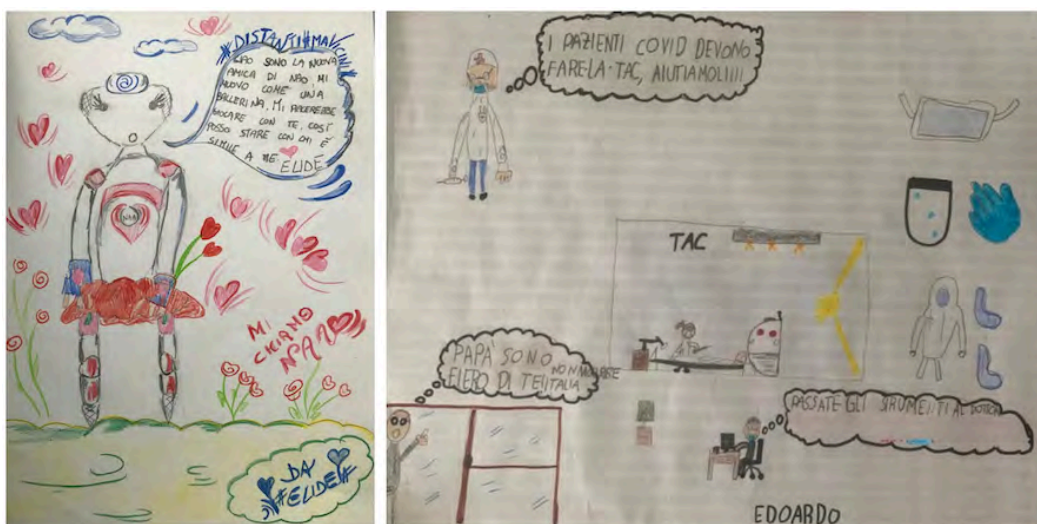 #DISTANTIMAVICINI#
CIAO SONO LA NUOVA
AMICA DI NAO. MI
MUOVO COME UNA
BALLERINA. MI PIACEREBBE
GIOCARE CON TE, COSÌ
POSSO STARE CON CHI È
SIMILE A ME.
ELIDE
NAA
MI
CHIAMO
NAA
DA
#ELIDE#
I PAZIENTI COVID DEVONO
FARE LA TAC, AIUTIAMOLI!!!!
TAC
PAPÀ SONO
FIERO DI TE!
NON MOLLARE
ITALIA
PASSATE GLI STRUMENTI AL
EDOARDO